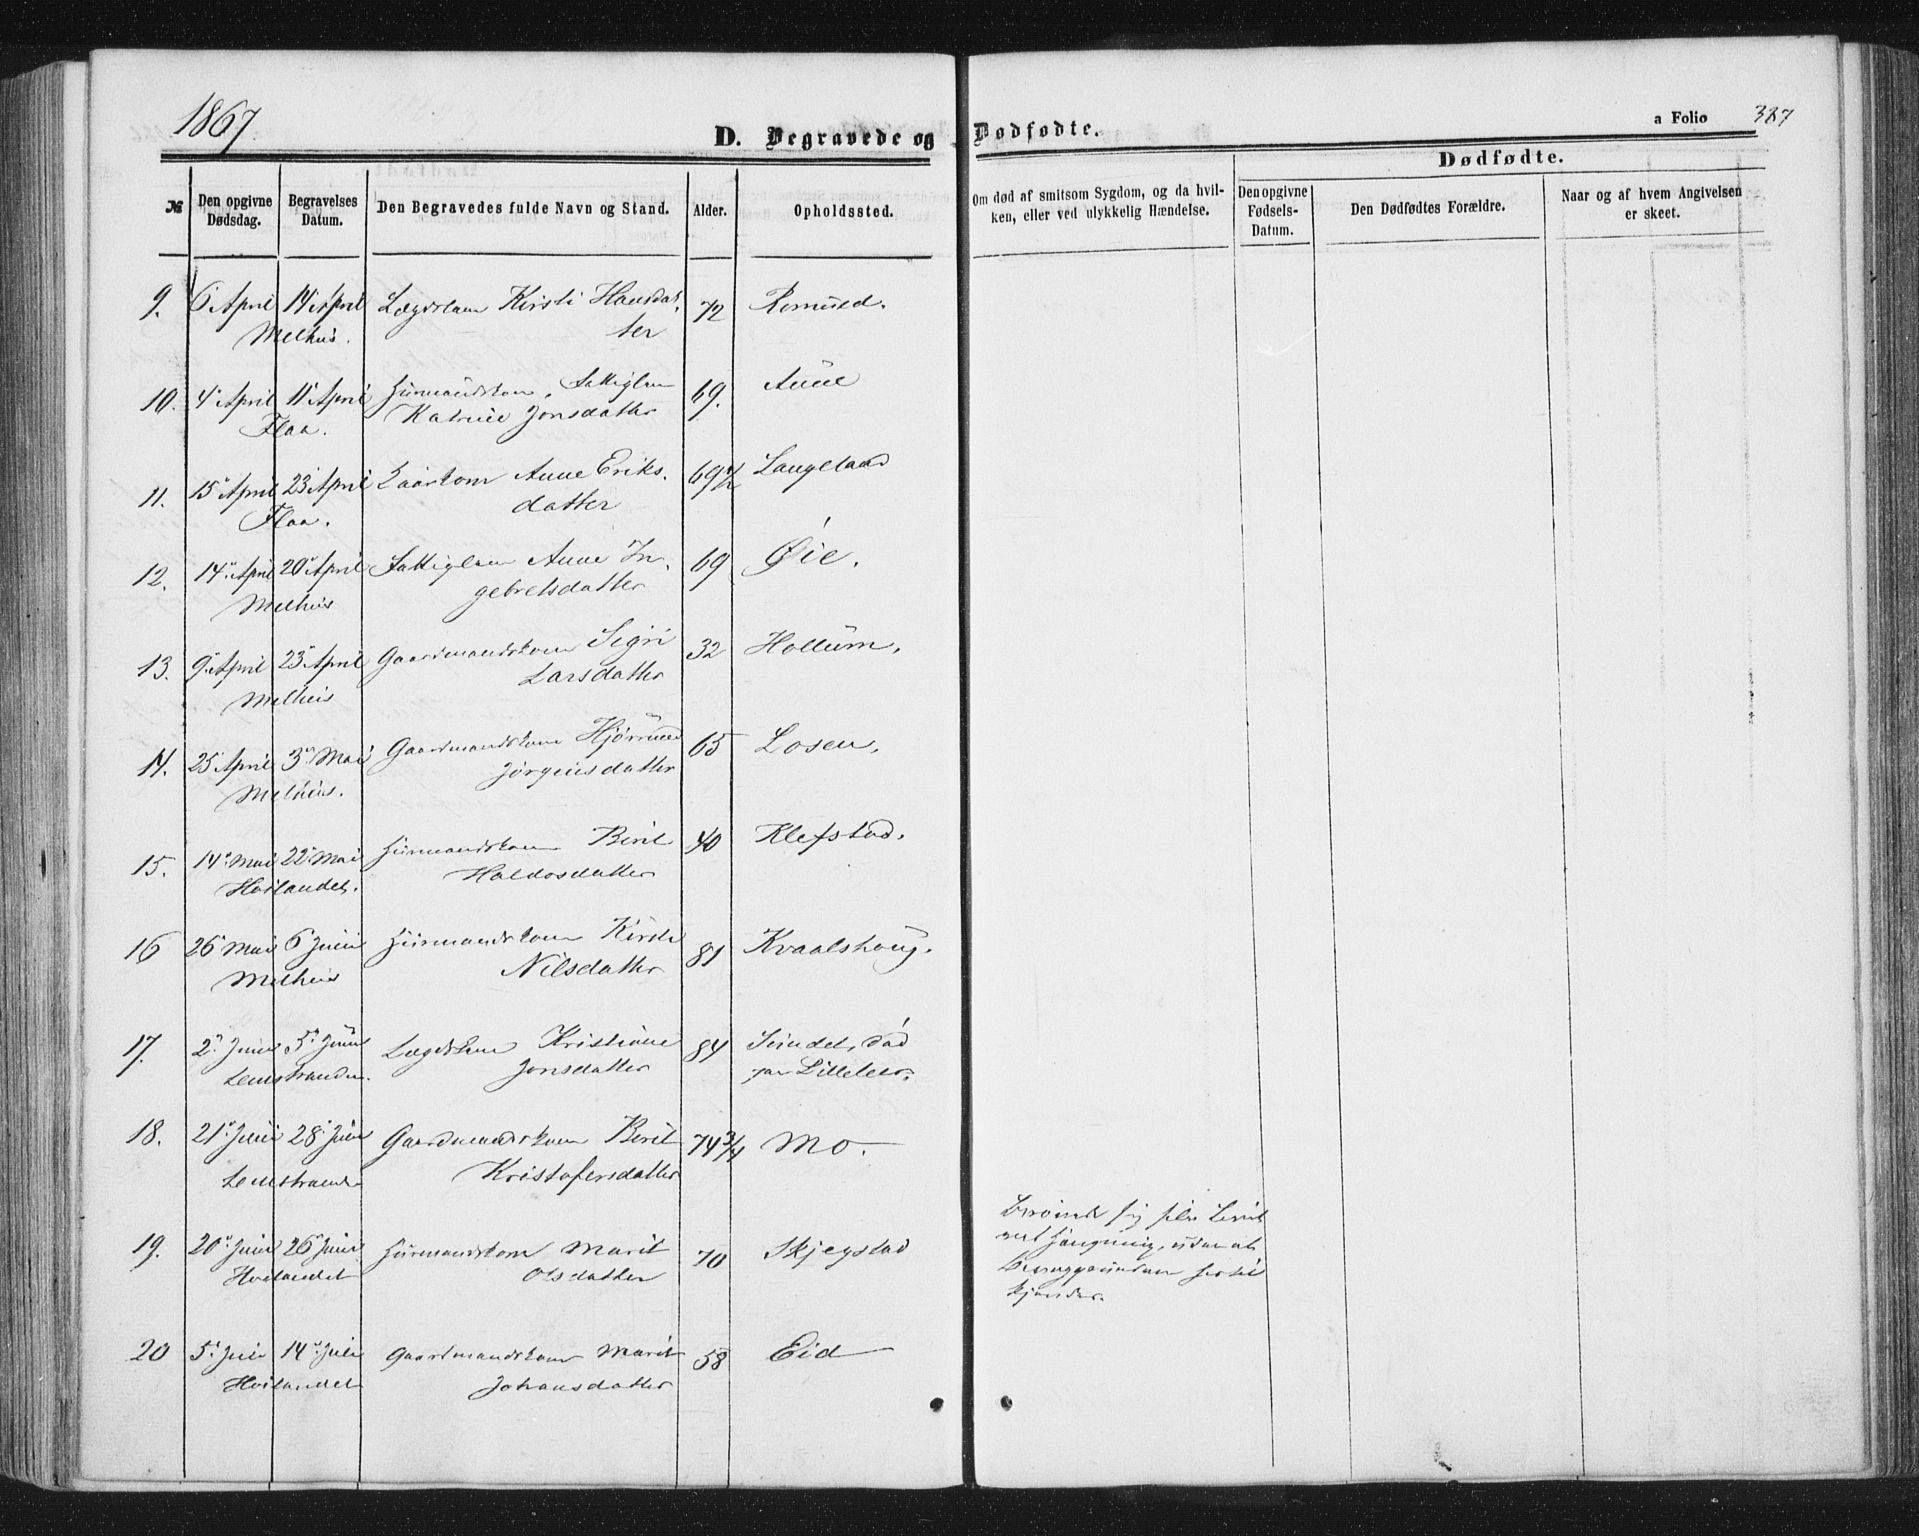 1867
D. Begravede og Dødfødte.
a Folio 387
Dødfødte.
№ Den opgivne Dødsdag. Begravelses Datum. Den Begravedes fulde Navn og Stand. Alder. Opholdssted.
Om død af smitsom Sygdom, og da hvil-
ken, eller ved ulykkelig Hændelse.
Den opgivne Fødsels-Datum. Den Dødfødtes Forældre. Naar og af hvem Angivelsen er skeet.
9. 6 April 14 April Lægdslem Kirsti Hansdat- 72 Romund.
Melhus. ter
10. 4 April 11 April Huusmandskone, Fattiglem 69. Aune
Flaa. Katrine Jonsdatter
11. 15 April 23 April Kaarkone Anne Eriks- 69½ Langeland
Flaa. datter
12. 14 April 20 April Fattiglem Anne In- 69 Øie.
Melhus gebretsdatter
13. 9 April 23 April Gaardmandskone Sigri 32 Hollum.
Melhus Larsdatter
14. 25 April 3 Mai Gaardmandskone Hjørrund 65 Losen.
Melhus. Jørginsdatter
15. 14 Mai 22 Mai Huusmandskone Berit 40 Klefstad.
Høilandet. Haldosdatter
16 26 Mai 6 Juni Huusmandskone Kirsti 81 Kvaalshaug.
Melhus Nilsdatter
17. 2 Juni 5 Juni Lægdslem Kristiane 84 død
Leinstranden. Jonsdatter paa
18. 21 Juni 28 Juni Gaardmandskone Berit 74¾ Mo.
Leinstranden Kristofersdatter
19. 20 Juni 26 Juni Huusmandskone Marit 70 Skjegstad
Høilandet Olsdatter
Berøvede sig selv Livet
ved Hængning, uden at
Bevæggrunden er til
kjende.
20 5 Juli 14 Juli Gaardmandskone Marit 58 Eid
Høilandet Johansdatter